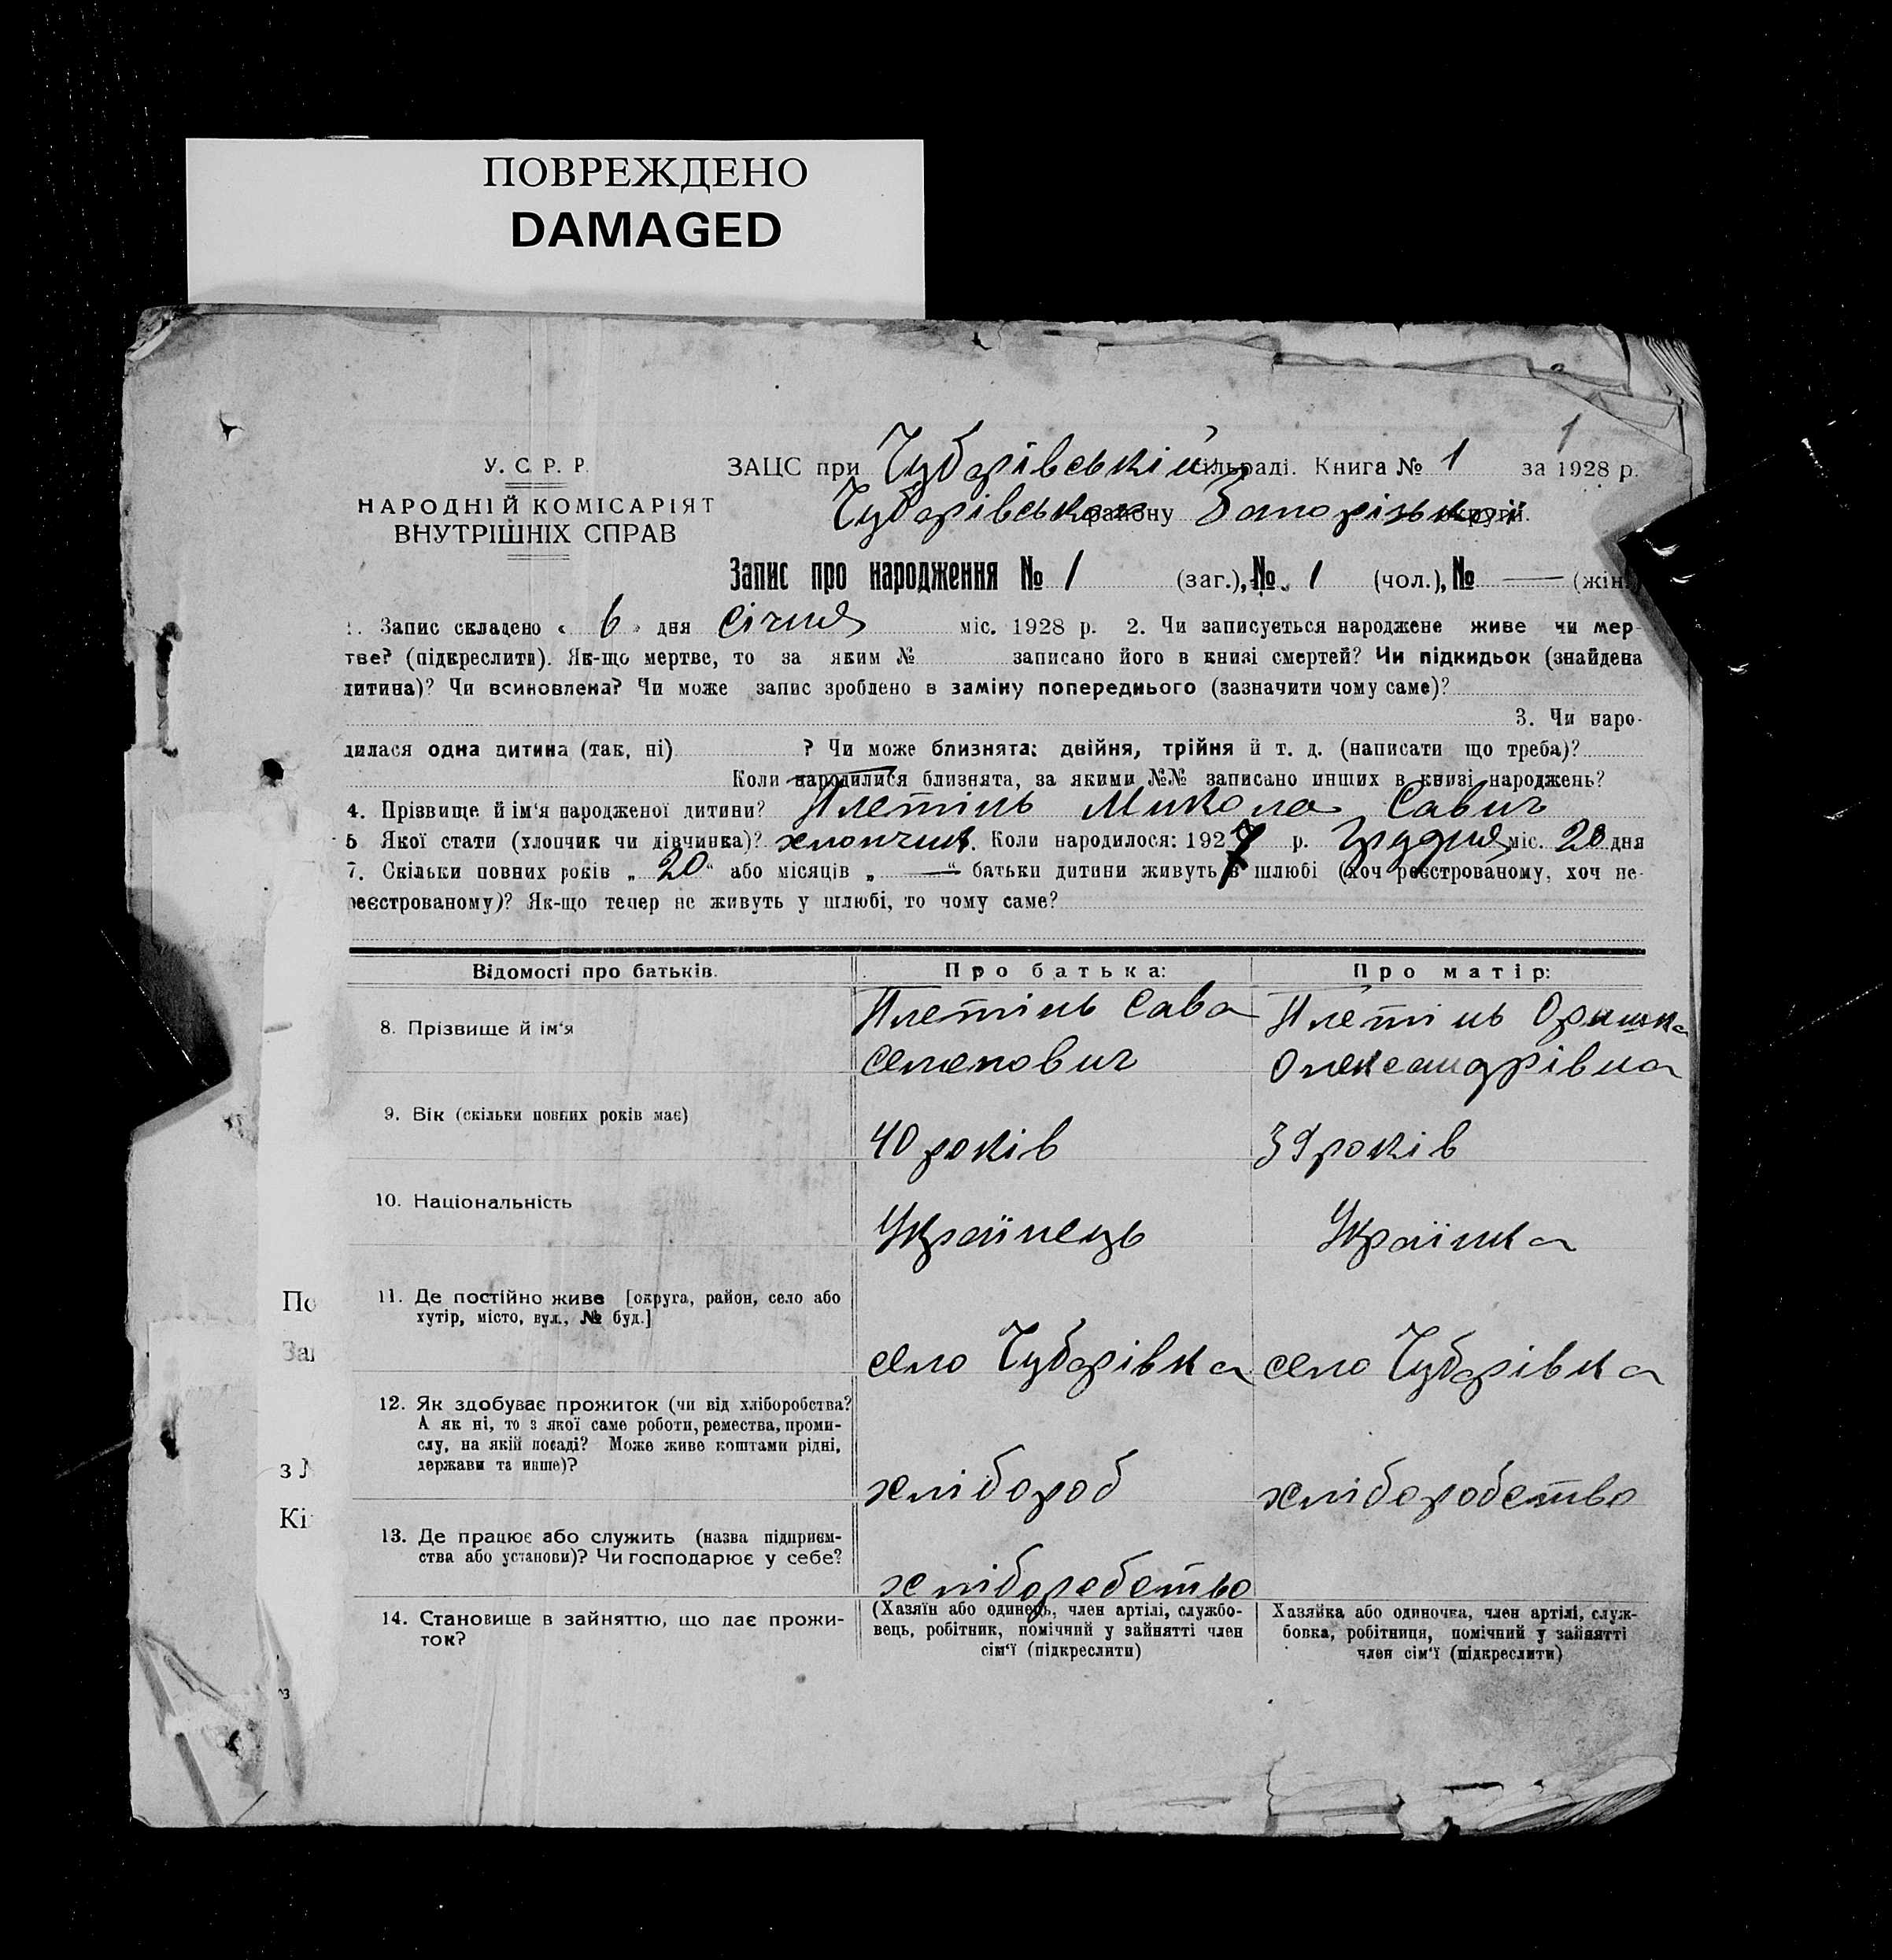 ПОВРЕЖДЕНО
DAMAGED
1
У. С. Р. Р.
НАРОДНІЙ КОМІСАРІЯТ
ВНУТРІШНІХ СПРАВ
ЗАЦС при Чубарівській сільраді. Книга № 1 за 1928 р.
Чубарівського району Запорізької округи.
Запис про народження № 1 (заг.), № 1 (чол.), № — (жін.)
1. Запис складено « 6 » дня Січня міс. 1928 р. 2. Чи записується народжене живе чи мер-
тве? (підкреслити). Як-що мертве, то за яким № записано його в книзі смертей? Чи підкидьок (знайдена
дитина)? Чи всиновлена? Чи може запис зроблено в заміну попереднього (зазначити чому саме)?
3. Чи наро-
дилася одна дитина (так, ні) ? Чи може близнята: двійня, трійня й т. д. (написати що треба)?
Коли народилися близнята, за якими №№ записано инших в книзі народжень?
4. Прізвище й ім'я народженої дитини? Плетінь Микола Савич
5 Якої стати (хлопчик чи дівчинка)? хлопчик. Коли народилося: 1927 р. Грудня міс. 20 дня
7. Скільки повних років „ 20 “ або місяців „ — “ батьки дитини живуть в шлюбі (хоч реєстрованому, хоч не-
реєстрованому)? Як-що тепер не живуть у шлюбі, то чому саме?
Відомості про батьків. Про батька: Про матір:
8. Прізвище й ім'я Плетінь Сава Плетінь Оришка
Семенович Олександрівна
9. Вік (скільки повних років має)
40 років 39 років
10. Національність
Українець Українка
11. Де постійно живе [округа, район, село або
хутір, місто, вул., № буд.]
село Чубарівка село Чубарівка
12. Як здобуває прожиток (чи від хліборобства?
А як ні, то з якої саме роботи, ремества, проми-
слу, на якій посаді? Може живе коштами рідні,
держави та инше)?
хлібороб хліборобство
13. Де працює або служить (назва підприєм-
ства або установи)? Чи господарює у себе?
хліборобство
14. Становище в зайняттю, що дає прожи-
ток?
(Хазяїн або одинець, член артілі, службо-
вець, робітник, помічний у зайнятті член
сім'ї (підкреслити)
Хазяйка або одиночка, член артілі, служ-
бовка, робітниця, помічний у зайнятті
член сім'ї (підкреслити)
По
За
з №
Кі